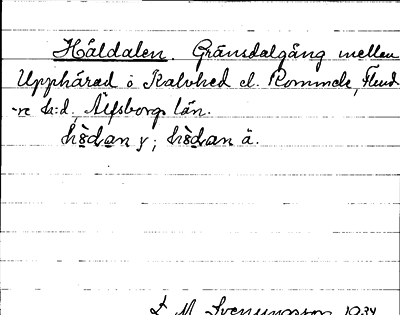 Håldalen. Gränsdalgång mellan
Upphärad o Kalvhed el. Rommele, Flund
-re h:d, Älfsborgs län.
y; ä.
M Svenungsson 1934